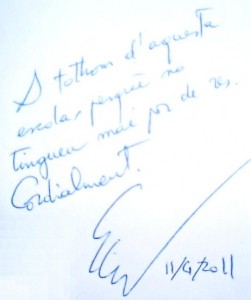 A tothom d'aquesta
escola, perquè no
tingueu mai por de res.
Cordialment.
11/4/2011